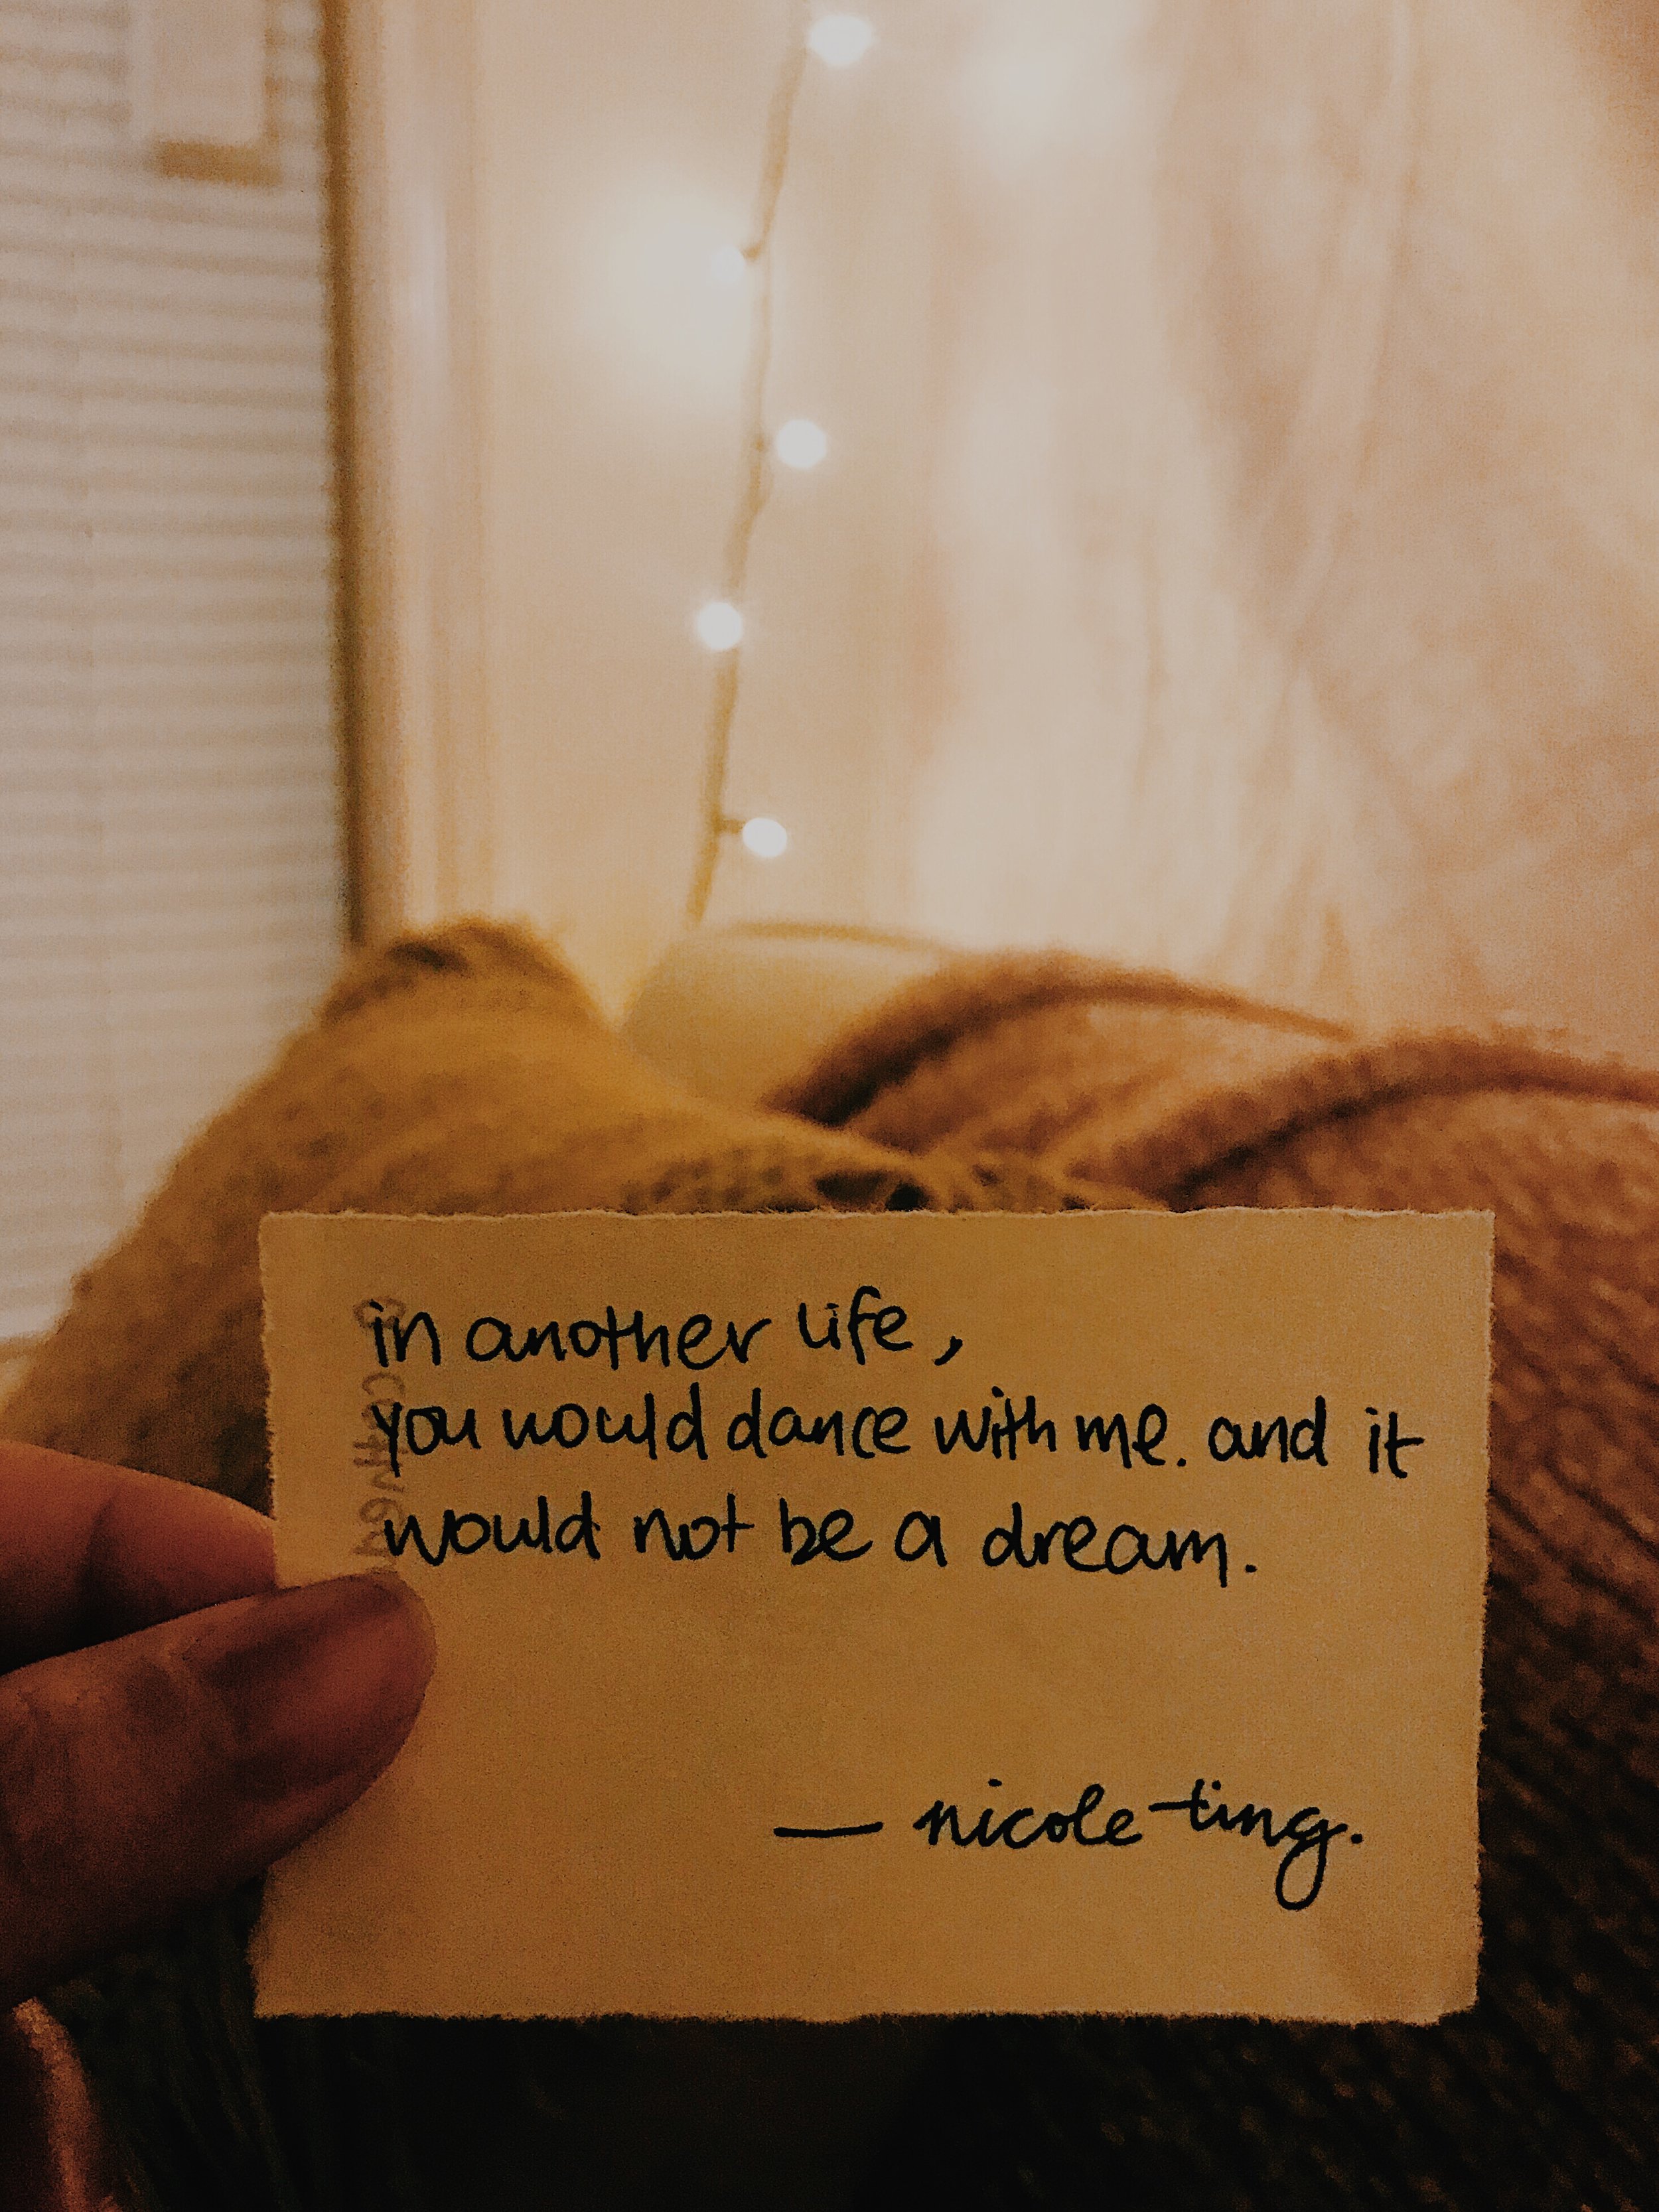 in another life,
you would dance with me. and it
would not be a dream.
— nicole ting.